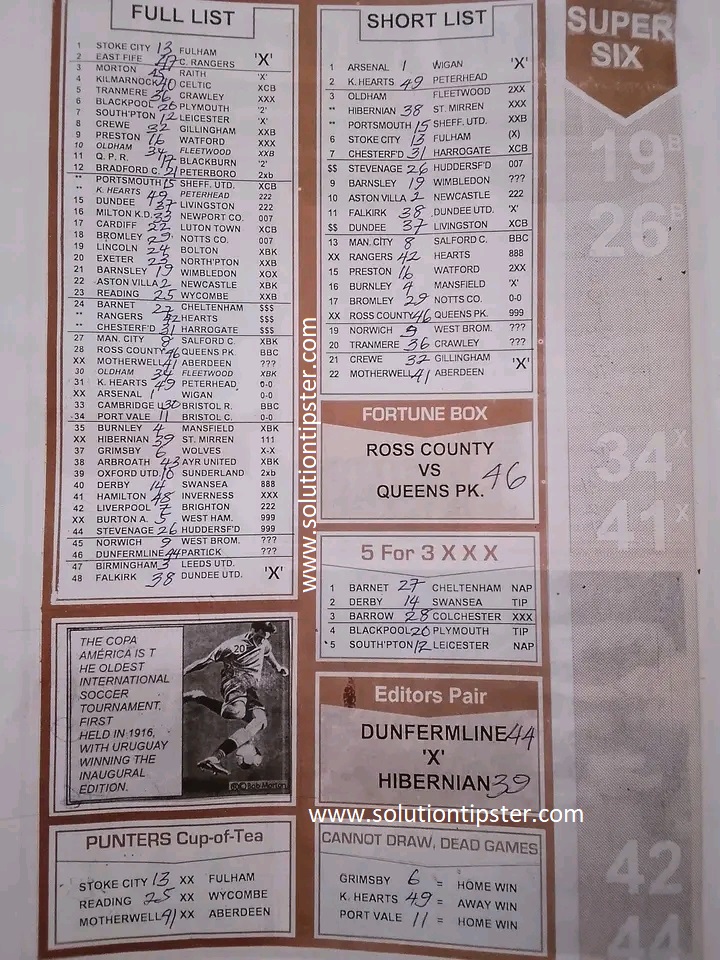 FULL LIST
1 STOKE CITY 13 FULHAM
2 EAST FIFE C. RANGERS 'X'
3 MORTON 45 RAITH 'X'
4 KILMARNOCK 40 CELTIC XCB
5 TRANMERE 36 CRAWLEY XXX
6 BLACKPOOL 20 PLYMOUTH '2'
7 SOUTH'PTON 12 LEICESTER 'X'
8 CREWE 32 GILLINGHAM XXB
9 PRESTON 16 WATFORD XXX
10 OLDHAM 34 FLEETWOOD XXB
11 Q. P. R. 17 BLACKBURN '2'
12 BRADFORD C. 21 PETERBORO 2xb
** PORTSMOUTH 15 SHEFF. UTD. XCB
** K. HEARTS 49 PETERHEAD 222
15 DUNDEE 37 LIVINGSTON 222
16 MILTON K.D. 33 NEWPORT CO. 007
17 CARDIFF 22 LUTON TOWN XCB
18 BROMLEY 29 NOTTS CO. 007
19 LINCOLN 24 BOLTON XBK
20 EXETER 23 NORTH'PTON XXB
21 BARNSLEY 19 WIMBLEDON XOX
22 ASTON VILLA 2 NEWCASTLE XBK
23 READING 25 WYCOMBE XXB
24 BARNET 27 CHELTENHAM $$$
** RANGERS 42 HEARTS $$$
** CHESTERF'D 31 HARROGATE $$$
27 MAN. CITY 8 SALFORD C. XBK
28 ROSS COUNTY 46 QUEENS PK. BBC
XX MOTHERWELL 41 ABERDEEN ??
30 OLDHAM 34 FLEETWOOD XBK
31 K. HEARTS 49 PETERHEAD. 0-0
XX ARSENAL 1 WIGAN 0-0
33 CAMBRIDGE U 30 BRISTOL R. BBC
34 PORT VALE 11 BRISTOL C. 0-0
35 BURNLEY 4 MANSFIELD XBK
XX HIBERNIAN 39 ST. MIRREN 111
37 GRIMSBY 6 WOLVES X-X
38 ARBROATH 43 AYR UNITED XBK
39 OXFORD UTD. 10 SUNDERLAND 2xb
40 DERBY 14 SWANSEA 888
41 HAMILTON 48 INVERNESS XXX
42 LIVERPOOL 7 BRIGHTON 222
XX BURTON A. 5 WEST HAM. 999
44 STEVENAGE 26 HUDDERSF'D 999
45 NORWICH 9 WEST BROM. ???
46 DUNFERMLINE 44 PARTICK ???
47 BIRMINGHAM 3 LEEDS UTD.
48 FALKIRK 38 DUNDEE UTD. 'X'
THE COPA
AMÉRICA IS T
HE OLDEST
INTERNATIONAL
SOCCER
TOURNAMENT,
FIRST
HELD IN 1916,
WITH URUGUAY
WINNING THE
INAUGURAL
EDITION.
20
PUNTERS Cup-of-Tea
STOKE CITY 13 XX FULHAM
READING 25 XX WYCOMBE
MOTHERWELL 41 XX ABERDEEN
SHORT LIST
1 ARSENAL 1 WIGAN 'X'
2 K. HEARTS 49 PETERHEAD
3 OLDHAM FLEETWOOD 2XX
** HIBERNIAN 38 ST. MIRREN XXX
** PORTSMOUTH 15 SHEFF. UTD. XXB
6 STOKE CITY 13 FULHAM (X)
7 CHESTERF'D 31 HARROGATE XCB
$$ STEVENAGE 26 HUDDERSF'D 007
9 BARNSLEY 19 WIMBLEDON ???
10 ASTON VILLA 2 NEWCASTLE 222
11 FALKIRK 38 DUNDEE UTD. 'X'
$$ DUNDEE 37 LIVINGSTON XCB
13 MAN. CITY 8 SALFORD C. BBC
XX RANGERS 42 HEARTS 888
15 PRESTON 16 WATFORD 2XX
16 BURNLEY 4 MANSFIELD 'X'
17 BROMLEY 29 NOTTS CO. 0-0
XX ROSS COUNTY 46 QUEENS PK. 999
19 NORWICH 9 WEST BROM. ???
20 TRANMERE 36 CRAWLEY ???
21 CREWE 32 GILLINGHAM 'X'
22 MOTHERWELL 41 ABERDEEN
FORTUNE BOX
ROSS COUNTY
VS 46
QUEENS PK.
5 For 3 X X X
1 BARNET 27 CHELTENHAM NAP
2 DERBY 14 SWANSEA TIP
3 BARROW 28 COLCHESTER XXX
4 BLACKPOOL 20 PLYMOUTH TIP
5 SOUTH'PTON 12 LEICESTER NAP
Editors Pair
DUNFERMLINE 44
'X'
HIBERNIAN 39
CANNOT DRAW, DEAD GAMES
GRIMSBY 6 = HOME WIN
K. HEARTS 49 = AWAY WIN
PORT VALE 11 = HOME WIN
SUPER
SIX
19 B
26 B
34 X
41 X
42
44
www.solutiontipster.com
www.solutiontipster.com